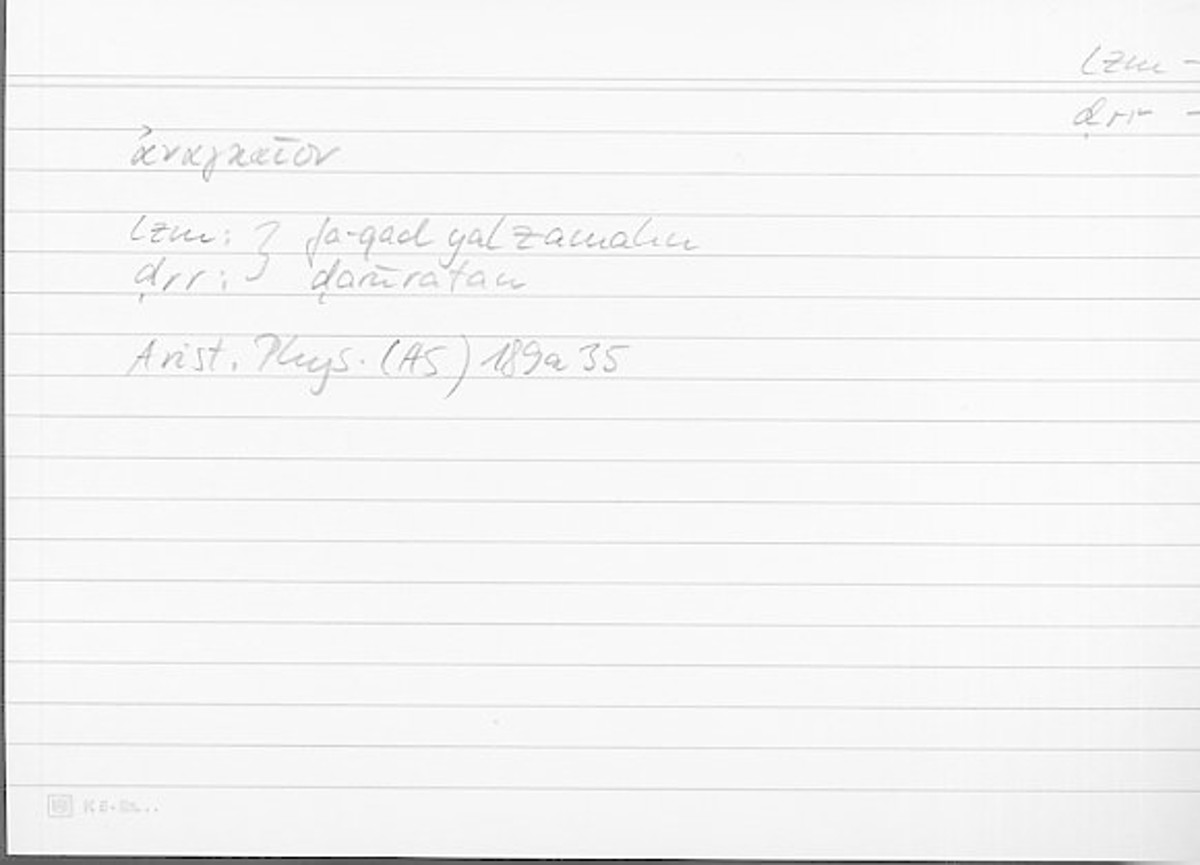 lzm -
ḍrr -
ἀναγκαῖον
lzm: } fa-qad yalzamahu
ḍrr: } ḍarūratan
Arist. Phys. (AS) 189a 35